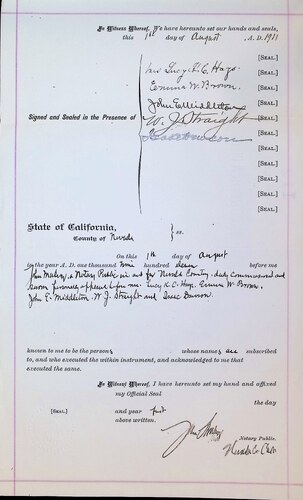 In Witness Whereof, We have hereunto set our hands and seals,
this 1st day of August , A. D. 1911
[SEAL.]
Mrs Lucy K. C. Hays. [SEAL.]
Emma W. Brown. [SEAL.]
John E. Middleton [SEAL.]
Signed and Sealed in the Presence of W. J. Straight [SEAL.]
[SEAL.]
[SEAL.]
[SEAL.]
[SEAL.]
[SEAL.]
State of California,
County of Nevada } ss.
On this 1st day of August
in the year A. D. one thousand nine hundred before me
John Mulroy, a Notary Public in and for Nevada County, duly commissioned and
sworn personally appeared before me Lucy K. C. Hays, Emma W. Brown,
John E. Middleton, W. J. Straight and Isaac
known to me to be the persons whose names are subscribed
to, and who executed the within instrument, and acknowledged to me that
executed the same.
In Witness Whereof, I have hereunto set my hand and affixed
my Official Seal the day
[SEAL.] and year first
above written.
Notary Public.
Nevada Co